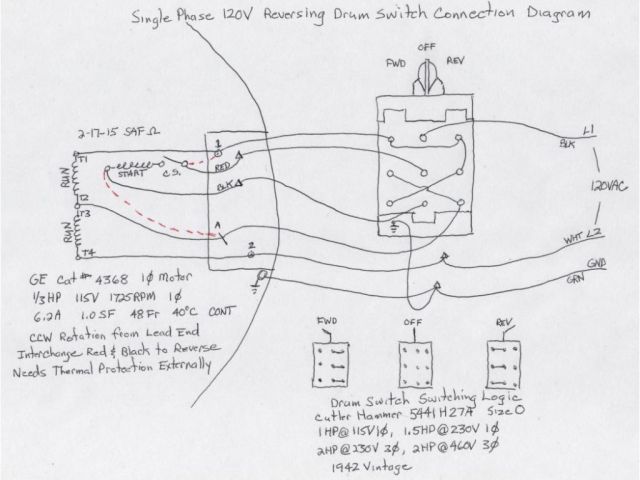 Single Phase 120V Reversing Drum Switch Connection Diagram
OFF
FWD
REV
2-17-15 SAF Ω
T1
START
C.S.
1
RED
BLK
RUN
T2
T3
A
RUN
T4
2
L1
BLK
120VAC
WHT L2
GND
GRN
GE Cat # 4368 1Ø Motor
1/3 HP 115V 1725RPM 1Ø
6.2A 1.0 SF 48 Fr 40°C CONT
CCW Rotation from Lead End
Interchange Red & Black to Reverse
Needs Thermal Protection Externally
FWD
OFF
REV
Drum Switch Switching Logic
Cutler Hammer 5441H27A Size 0
1HP@115V1Ø, 1.5HP@230V 1Ø
2HP@230V 3Ø, 2HP@460V 3Ø
1942 Vintage